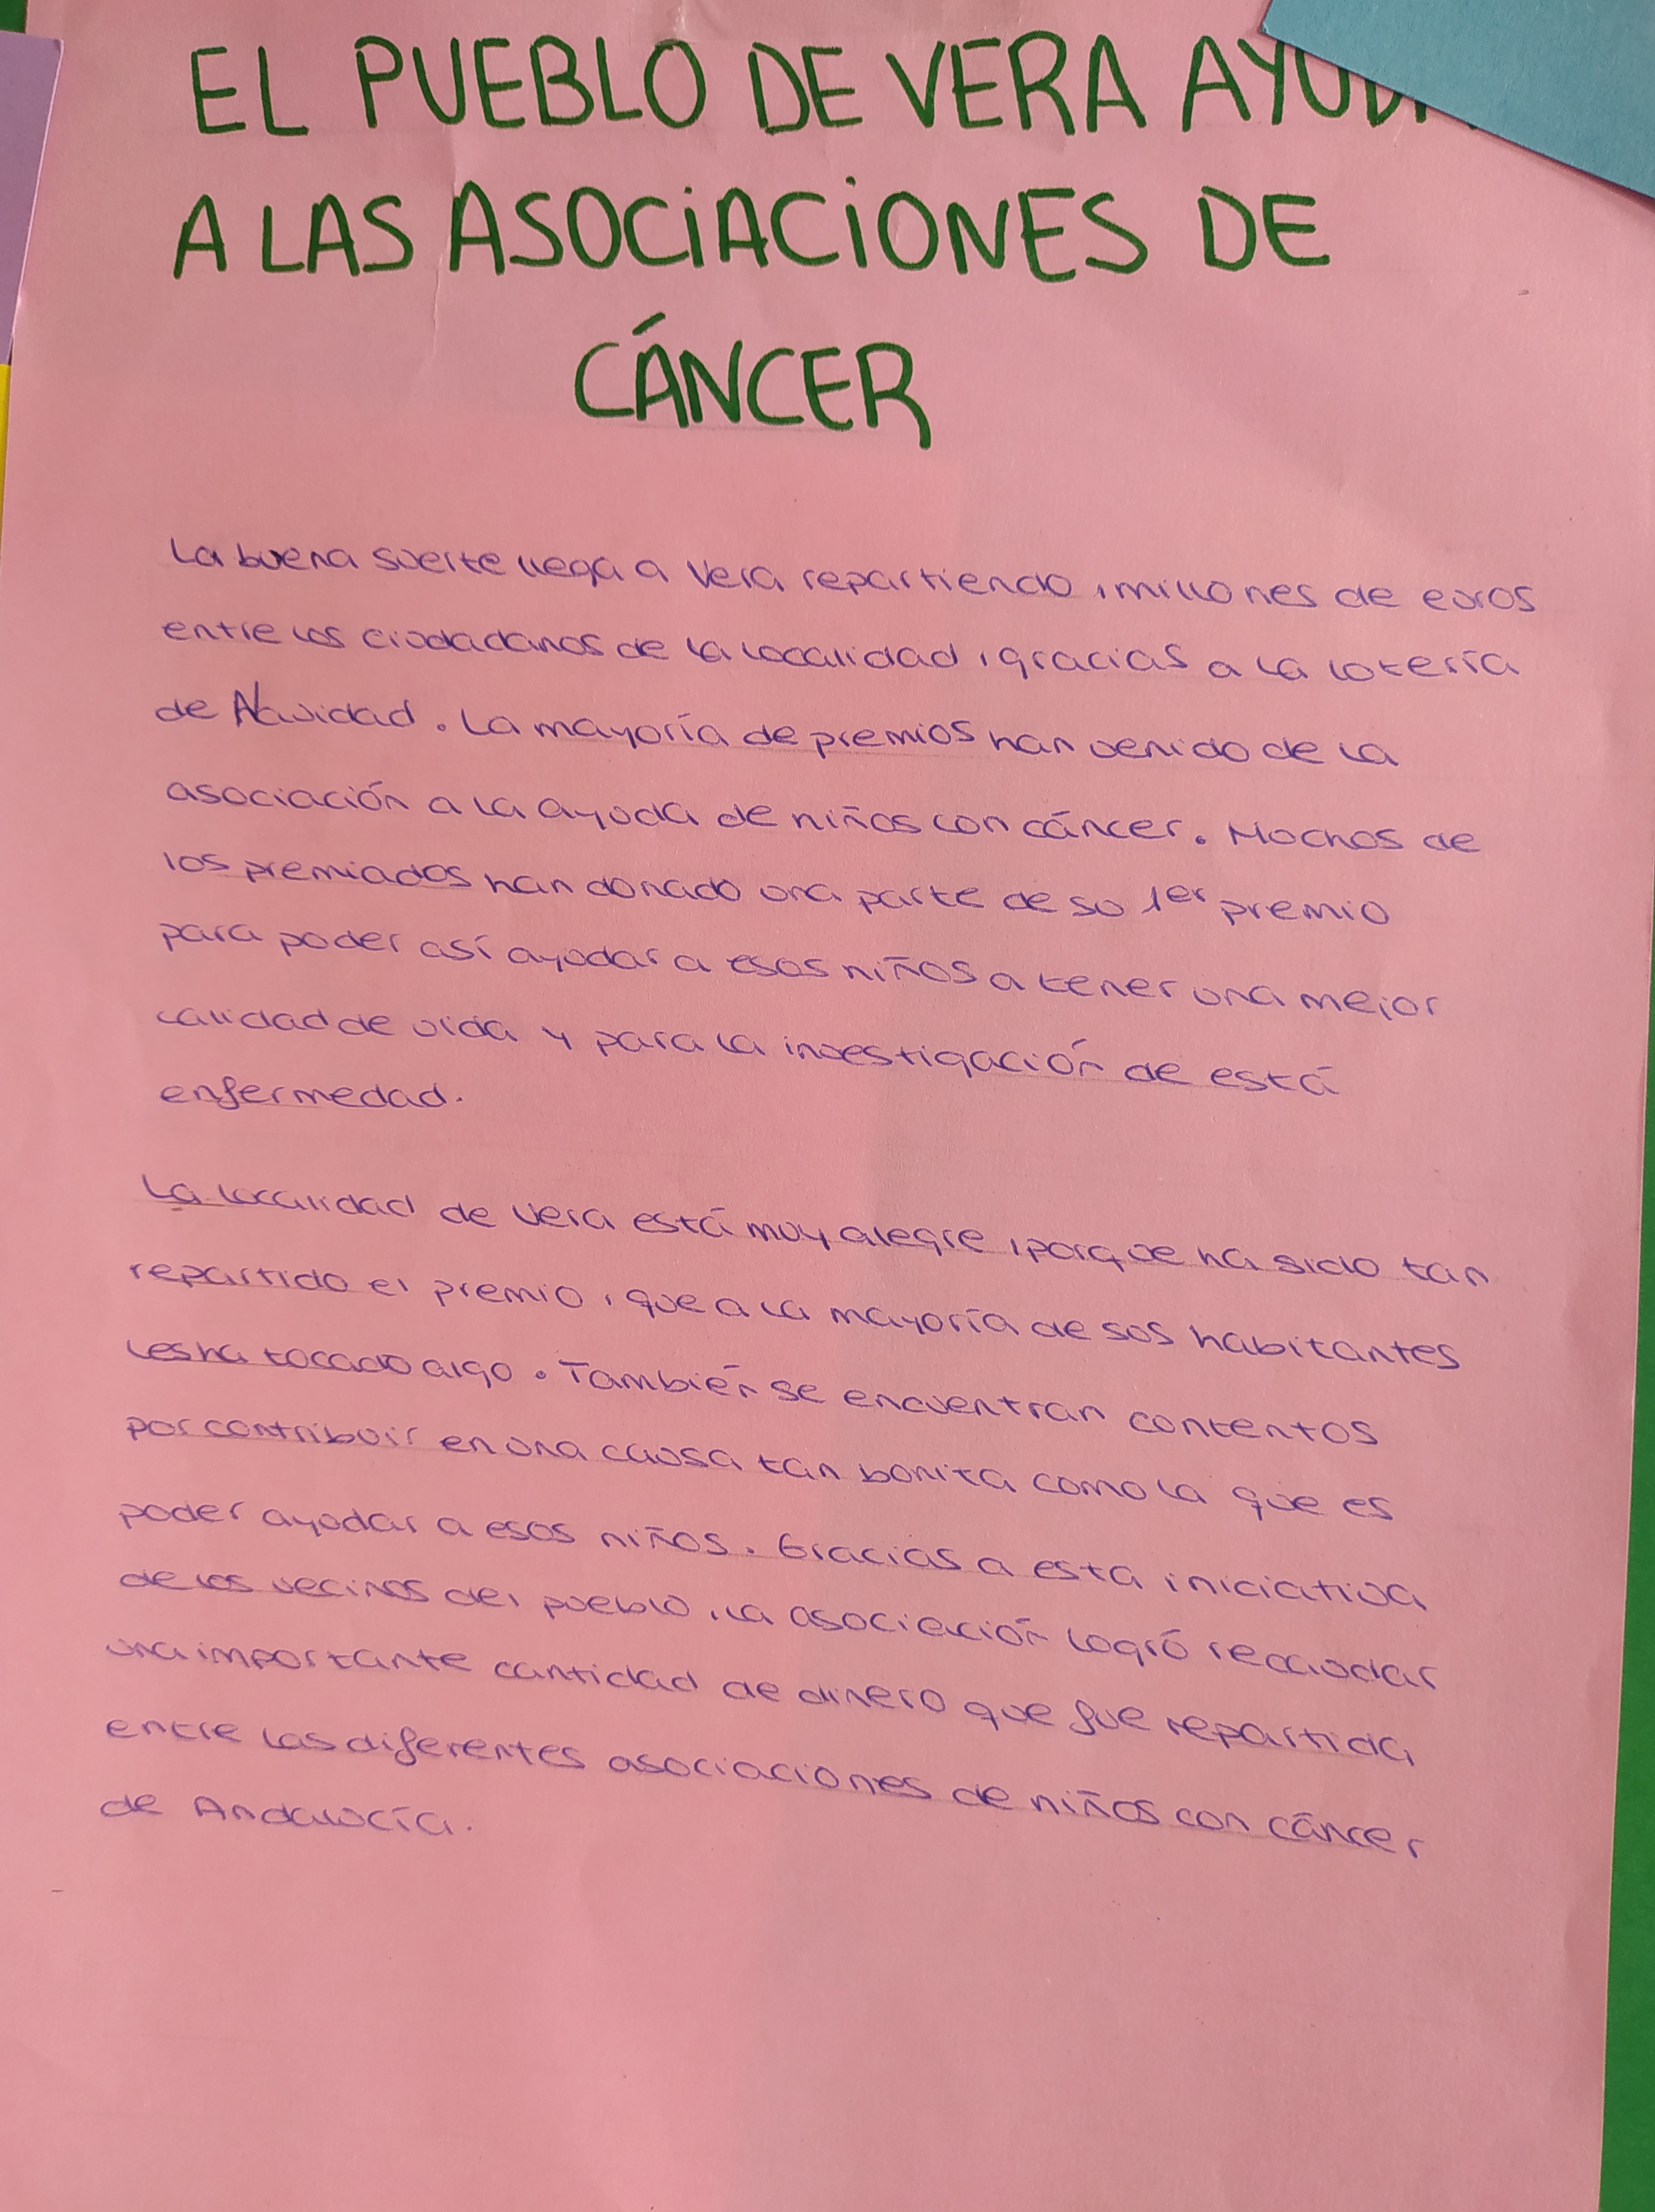 EL PUEBLO DE VERA AYUDA
A LAS ASOCIACIONES DE
CÁNCER
La buena suerte llega a Vera repartiendo , millones de euros
entre los ciudadanos de la localidad , gracias a la lotería
de Navidad. La mayoría de premios han venido de la
asociación a la ayuda de niños con cáncer. Muchos de
los premiados han donado una parte de su 1er premio
para poder así ayudar a esos niños a tener una mejor
calidad de vida y para la investigación de está
enfermedad.
La localidad de Vera está muy alegre , porque ha sido tan
repartido el premio , que a la mayoría de sus habitantes
les ha tocado algo. También se encuentran contentos
por contribuir en una causa tan bonita como la que es
poder ayudar a esos niños. Gracias a esta iniciativa
de los vecinos del pueblo , la asocieción logró recaudar
una importante cantidad de dinero que fue repartida
entre las diferentes asociaciones de niños con cáncer
de Andalucía.